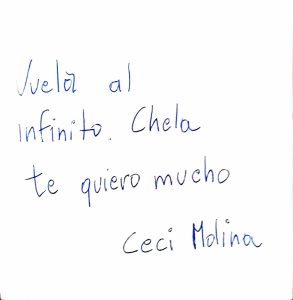 Vuela al
infinito. Chela
te quiero mucho
Ceci Molina